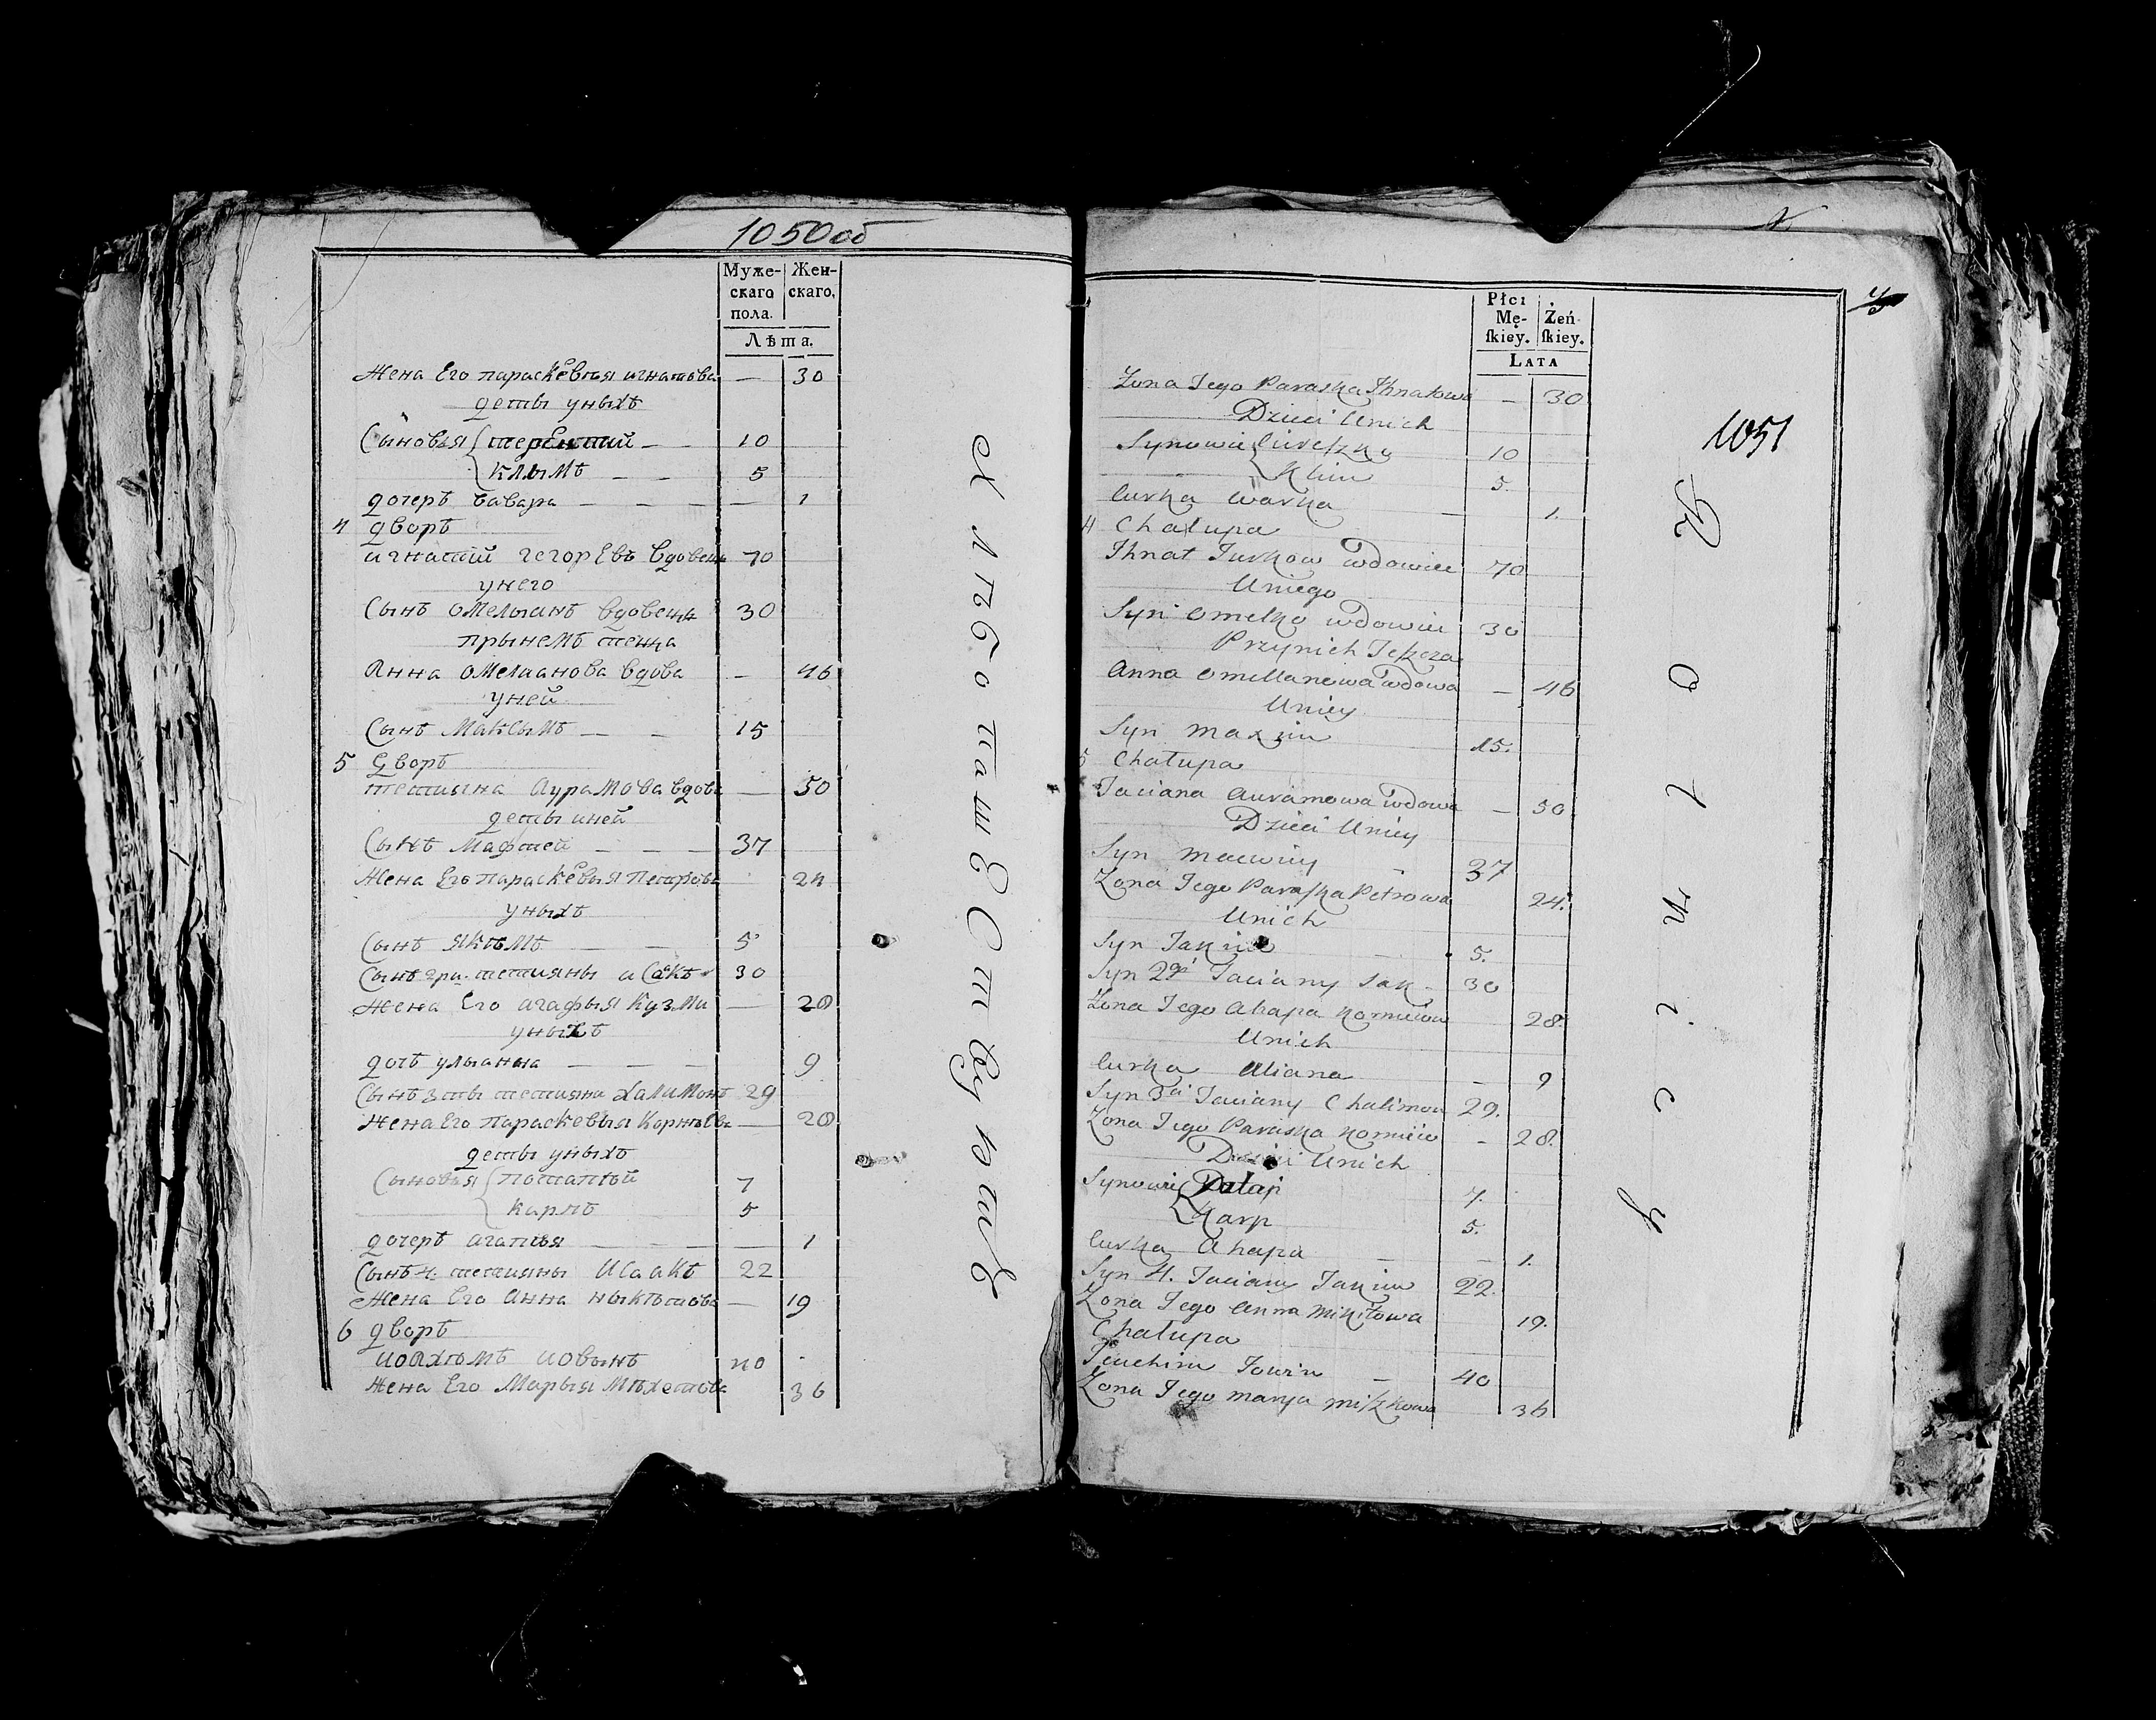 1050об
Муже- Жен-
скаго скаго.
пола.
Лѣта.
Жена Его параскевыя игнатова — 30
деты уныхъ
Сыновья терентий — 10
клымъ — — 5
дочеръ вавара — — — 1
4 дворъ
игнатий гегоревъ вдовецъ 70
унего
Сынъ омельянъ вдовецъ 30
прынемъ теща
Анна омельянова вдова — 46
уней
Сынъ Максымъ — — 15
5 дворъ
тетияна аурамова вдова — 50
деты уней
Сынъ Мафтей — — — 37
Жена Его параскевыя Петрова 24
уныхъ
Сынъ якѣмъ — — 5
Сынъ тетияны исакъ 30
Жена Его агафыя Кузми — 28
уныхъ
дочъ ульянна — — — 9
Сынъ 3 тетияны халимонъ 29
Жена Его параскевыя Корнѣева — 28
деты уныхъ
Сыновья потапѣй 7
карпъ 5
дочеръ агапия — — — 1
Сынъ 4. тетияны Исаакъ 22
Жена Его Анна ныкѣтова — 19
6 дворъ
иоахѣмъ иовынъ 40
Жена Его Марыя 36
Хлѣбопашествующѣ
Płci
Mę- Żeń
ſkiey. ſkiey.
LATA
1051
Zona Jego Paraska Ihnatowa — 30
Dzieci Unich
Synowie Cireſzko 10
Klim 5.
Curka Warka — 1.
4 Chałupa
Ihnat Jurkow Wdowiec 70
Uniego
Syn Omelko wdowiec 30
Przynich Teſzcza
Anna Omellanowa Wdowa — 46
Uniey
Syn Maxim 15.
5 Chałupa
Taciana Auramowa Wdowa — 50
Dzieci Uniey
Syn Maćwiy — 37
Zona Jego Paraſka Petrowa 24.
Unich
Syn Jakim — 5.
Syn 2gi Taciany Sak — 30
Zona Jego Ahapa 28.
Unich
Curka Uliana — 9
Syn 3ci Taciany Chalimon 29.
Zona Jego Paraska — 28.
Dzieci Unich
Synowie Patap 7.
Karp 5.
Curka Ahapa — — 1.
Syn 4. Taciany Jakim 22.
Zona Jego Anna Mikitowa 19.
Chałupa
Jouchim Jowin — 40
Zona Jego Marya Miſzkowa 36
Rolnicy